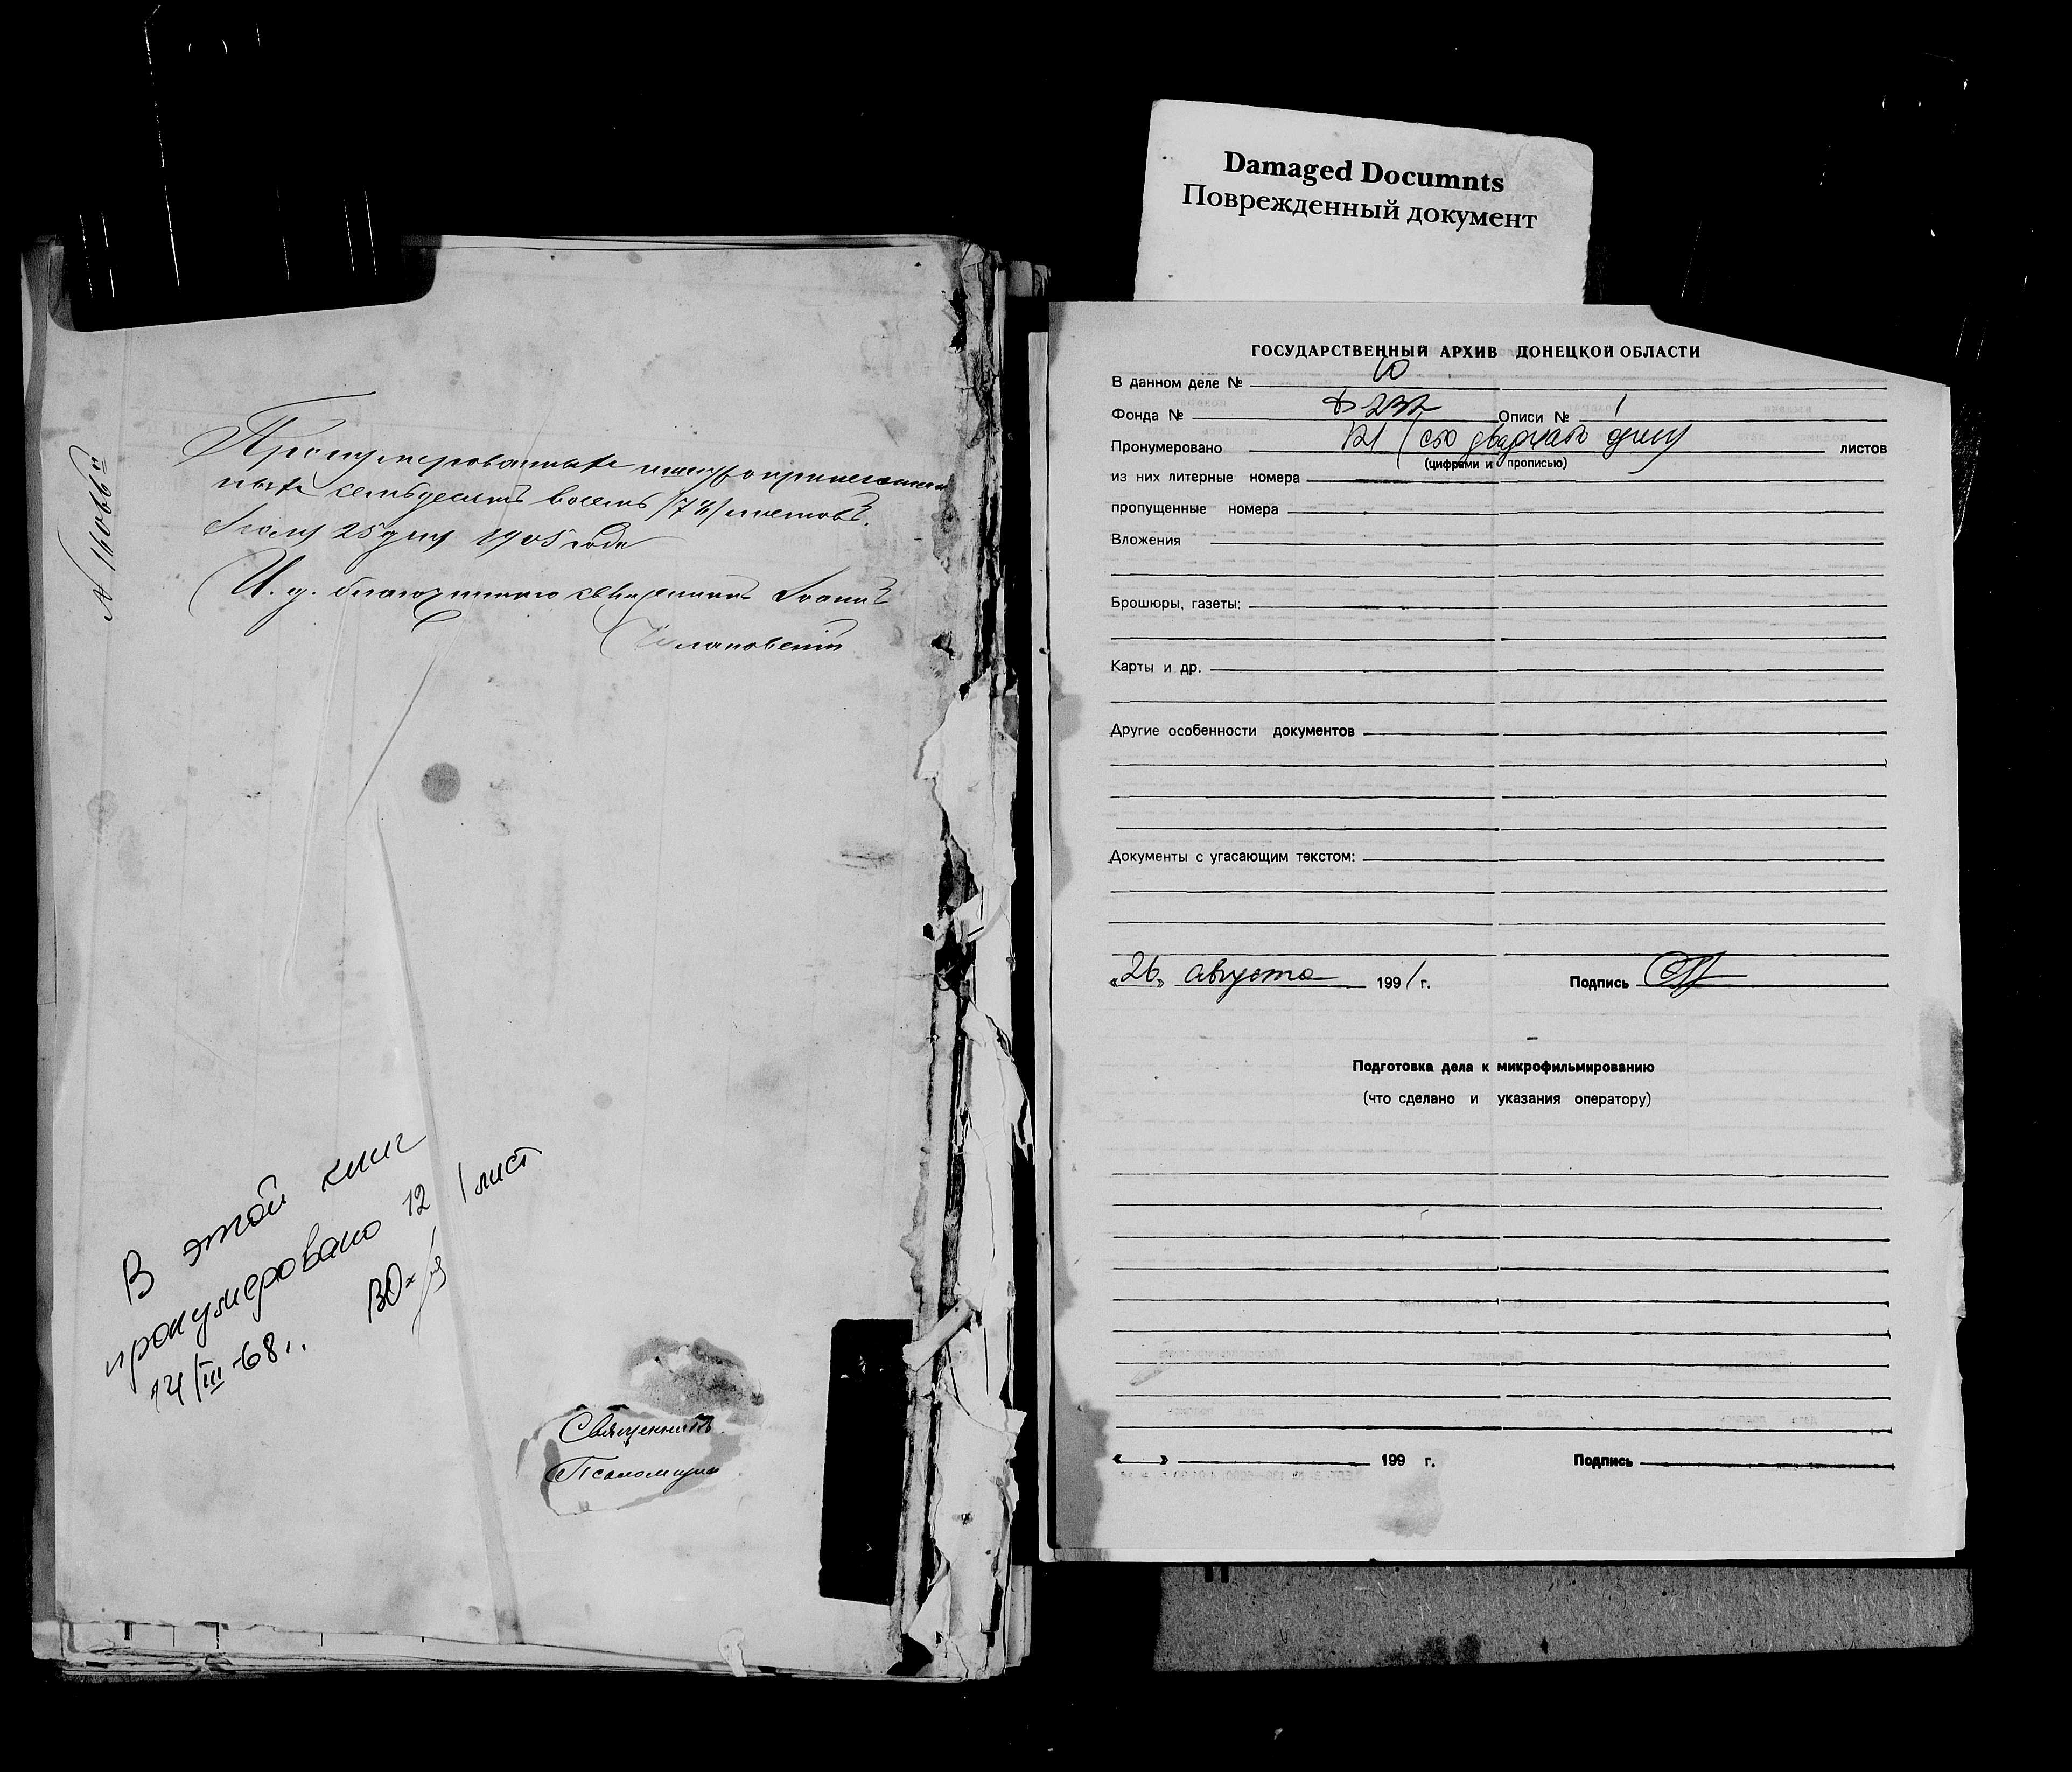 № 16066
Пронумерованныхъ шнуроприпечатан
ныхъ семьдесятъ восемь /78/ листовъ.
25 дня 1905 года
И. д. благочиннаго священникъ Іоаннъ
В этой книг
пронумеровано 121 лист
14/III-68г.
Священникъ
Псаломщикъ
Damaged Documnts
Поврежденный документ
ГОСУДАРСТВЕННЫЙ АРХИВ ДОНЕЦКОЙ ОБЛАСТИ
В данном деле № 10
Фонда № Ф-232 Описи № 1
Пронумеровано 121 (сто двадцать один листов
(цифрами и прописью)
из них литерные номера
пропущенные номера
Вложения
Брошюры, газеты:
Карты и др.
Другие особенности документов
Документы с угасающим текстом:
«26» августа 1991 г. Подпись
Подготовка дела к микрофильмированию
(что сделано и указания оператору)
« » 199 г. Подпись